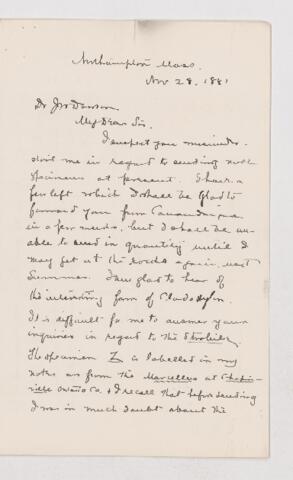 Northampton Mass.
Nov 28, 1881
Dr JW Dawson,
My Dear Sir,
I expect you misunder-
stood me in regard to sending
specimens at present. I have a
few left which I shall be glad to
forward you from Canandaigua
in a few weeks, but I shall be un-
able to send in quantity until I
may get at the rocks again next
Summer. I am glad to hear of
the interesting form of Cladoxylon.
It is difficult for me to answer your
inquiries in regard to the
The specimen Z is labelled in my
notes as from the Marcellus at
ville Ontario Co. & I recall that before sending
I was in much doubt about the